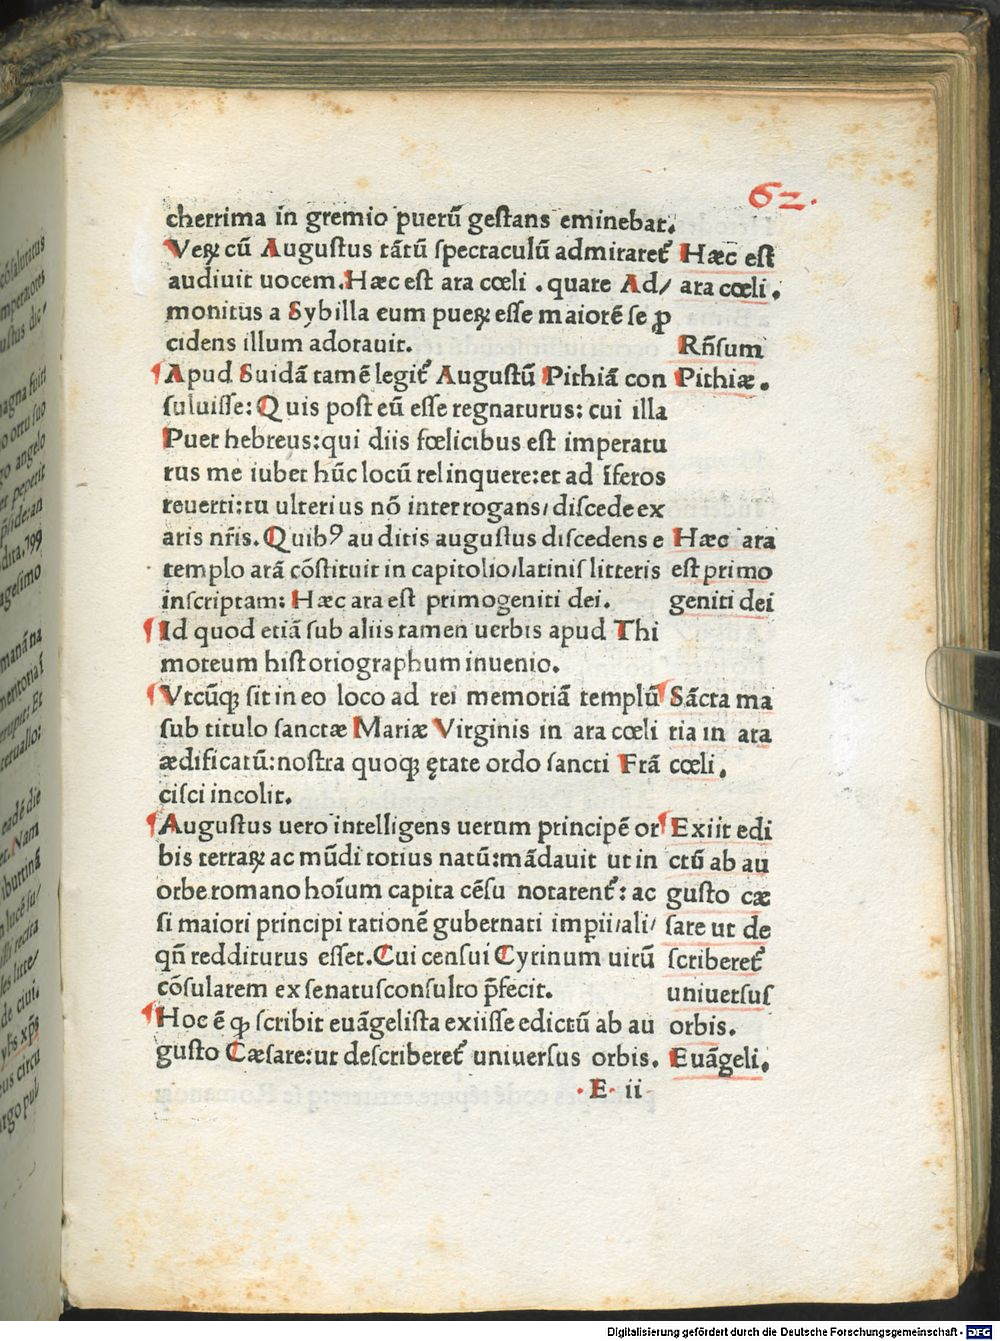 62.
cherrima in gremio puerū gestans eminebat.
Veꝝ cū Augustus tātū spectaculū admiraret᷑
audiuit uocem. Hæc est ara cœli . quare Ad/
monitus a Sybilla eum pueꝝ esse maiorē se ꝓ
cidens illum adorauit.
¶Apud Suidā tamē legit᷑ Augustū Pithiā con
suluisse: Quis post eū esse regnaturus: cui illa
Puer hebreus: qui diis fœlicibus est imperatu
rus me iubet hūc locū relinquere: et ad īferos
reuerti: tu ulterius nō interrogans/ discede ex
aris nr̄is. Quibꝰ auditis augustus discedens e
templo arā cōstituit in capitolio/latinis litteris
inscriptam: Hæc ara est primogeniti dei.
¶Id quod etiā sub aliis tamen uerbis apud Thi
moteum historiographum inuenio.
¶Vtcūqꝫ sit in eo loco ad rei memoriā templū
sub titulo sanctæ Mariæ Virginis in ara cœli
ædificatū: nostra quoqꝫ ętate ordo sancti Frā
cisci incolit.
¶Augustus uero intelligens uerum principē or
bis terraꝝ ac mūdi totius natū: mādauit ut in
orbe romano hoīum capita cēsu notarent᷑: ac
si maiori principi rationē gubernati impii/ali/
qn̄ redditurus esset. Cui censui Cyrinum uirū
cōsularem ex senatusconsulto p̄fecit.
¶Hoc ē qꝫ scribit euāgelista exiisse edictū ab au
gusto Cæsare: ut describeret᷑ uniuersus orbis.
Hæc est
ara cœli.
Rn̄sum
Pithiæ.
Hæc ara
est primo
geniti dei
¶Sācta ma
ria in ara
cœli.
¶Exiit edi
ctū ab au
gusto cæ
sare ut de
scriberet᷑
uniuersus
orbis.
Euāgeli.
.E. ii
Digitalisierung gefördert durch die Deutsche Forschungsgemeinschaft - DFG